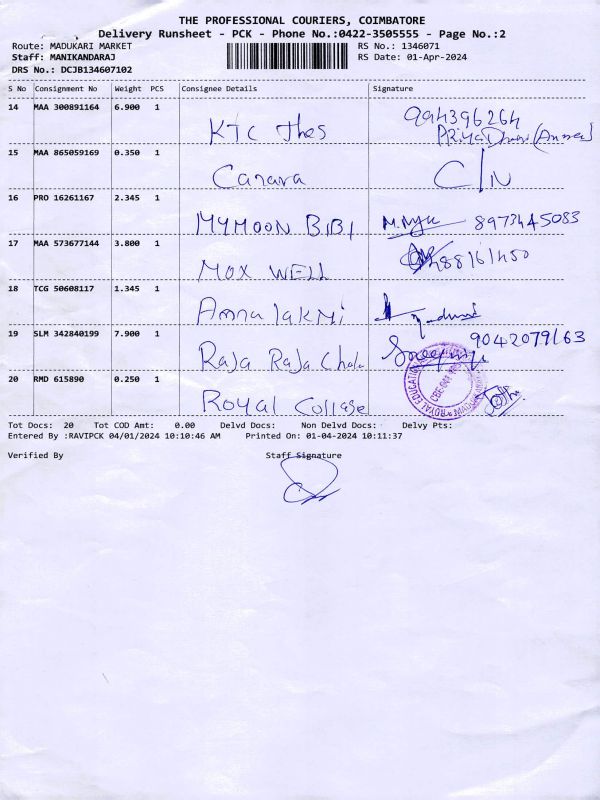 THE PROFESSIONAL COURIERS, COIMBATORE
Delivery Runsheet - PCK - Phone No.:0422-3505555 - Page No.:2
Route: MADUKARI MARKET
Staff: MANIKANDARAJ
DRS No.: DCJB134607102
RS No.: 1346071
RS Date: 01-Apr-2024
S No Consignment No Weight PCS Consignee Details Signature
14 MAA 300891164 6.900 1 KTC Thes 994396264
15 MAA 865059169 0.350 1 Canara C/N
16 PRO 16261167 2.345 1 MYMOON BIBI 8973445083
17 MAA 573677144 3.800 1 MOX WELL
18 TCG 50608117 1.345 1 Annalakmi
19 SLM 342840199 7.900 1 Raja Raja Chola 9042079163
20 RMD 615890 0.250 1 Royal College
ROYAL EDUCATION
Tot Docs: 20 Tot COD Amt: 0.00 Delvd Docs: Non Delvd Docs: Delvy Pts:
Entered By :RAVIPCK 04/01/2024 10:10:46 AM Printed On: 01-04-2024 10:11:37
Verified By Staff Signature